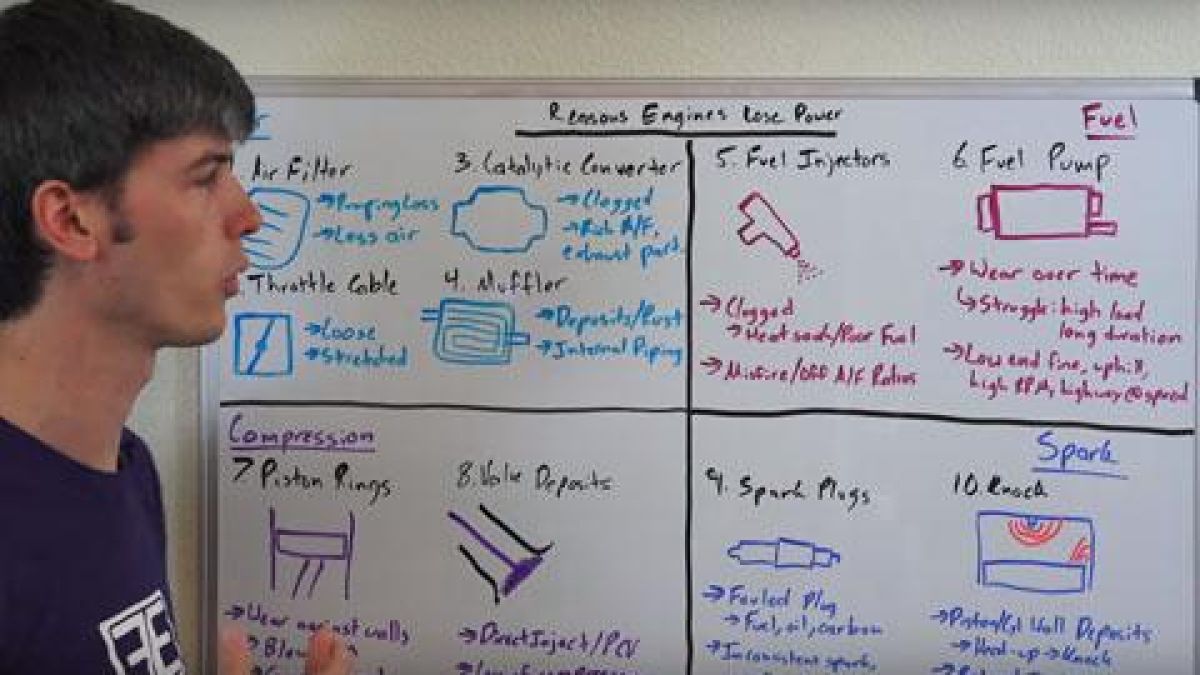 Reasons Engines Lose Power
Air Filter
→ Pumping Loss
→ Less air
Throttle Cable
→ Loose
→ Stretched
3. Catalytic Converter
→ Clogged
→ Rich A/F,
exhaust part.
4. Muffler
→ Deposits/Rust
→ Internal Piping
Fuel
5. Fuel Injectors
→ Clogged
→ Heat soak/Poor Fuel
→ Misfire/Off A/F Ratios
6. Fuel Pump
→ Wear over time
↳ Struggle: high load
long duration
→ Low end fine, uphill,
high RPM, highway @ speed
Compression
7 Piston Rings
→ Wear against walls
→ Blow
8. Valve Deposits
→ Direct Inject/PCV
Spark
9. Spark Plugs
→ Fouled Plug
→ Fuel, oil, carbon
→ Inconsistent spark,
10. Knock
→ Piston/Cyl Wall Deposits
→ Heat-up → Knock